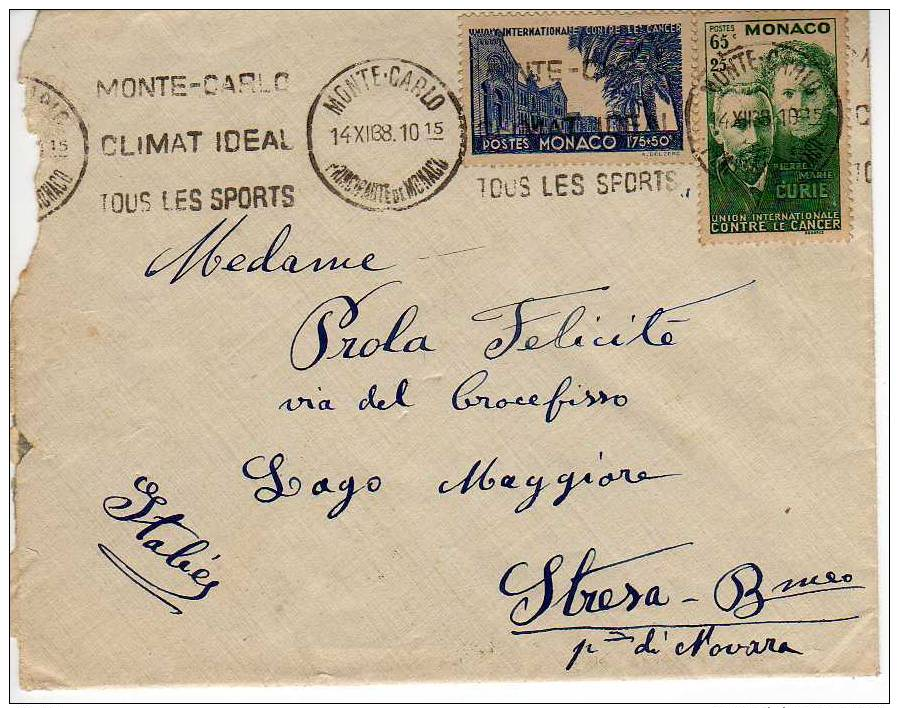 MONTE-CARLO
CLIMAT IDEAL
TOUS LES SPORTS
MONTE-CARLO
14 XII 38. 10 15
PRINCIPAUTE DE MONACO
UNION INTERNATIONALE CONTRE LE CANCER
POSTES MONACO 1.75+50c
TOUS LES SPORTS
POSTES MONACO
65c
25c
PIERRE
MARIE
CURIE
UNION INTERNATIONALE
CONTRE LE CANCER
Medame
Prola Felicité
via del Crocefisso
Lago Maggiore
Stresa - Bmeo
pza di Novara